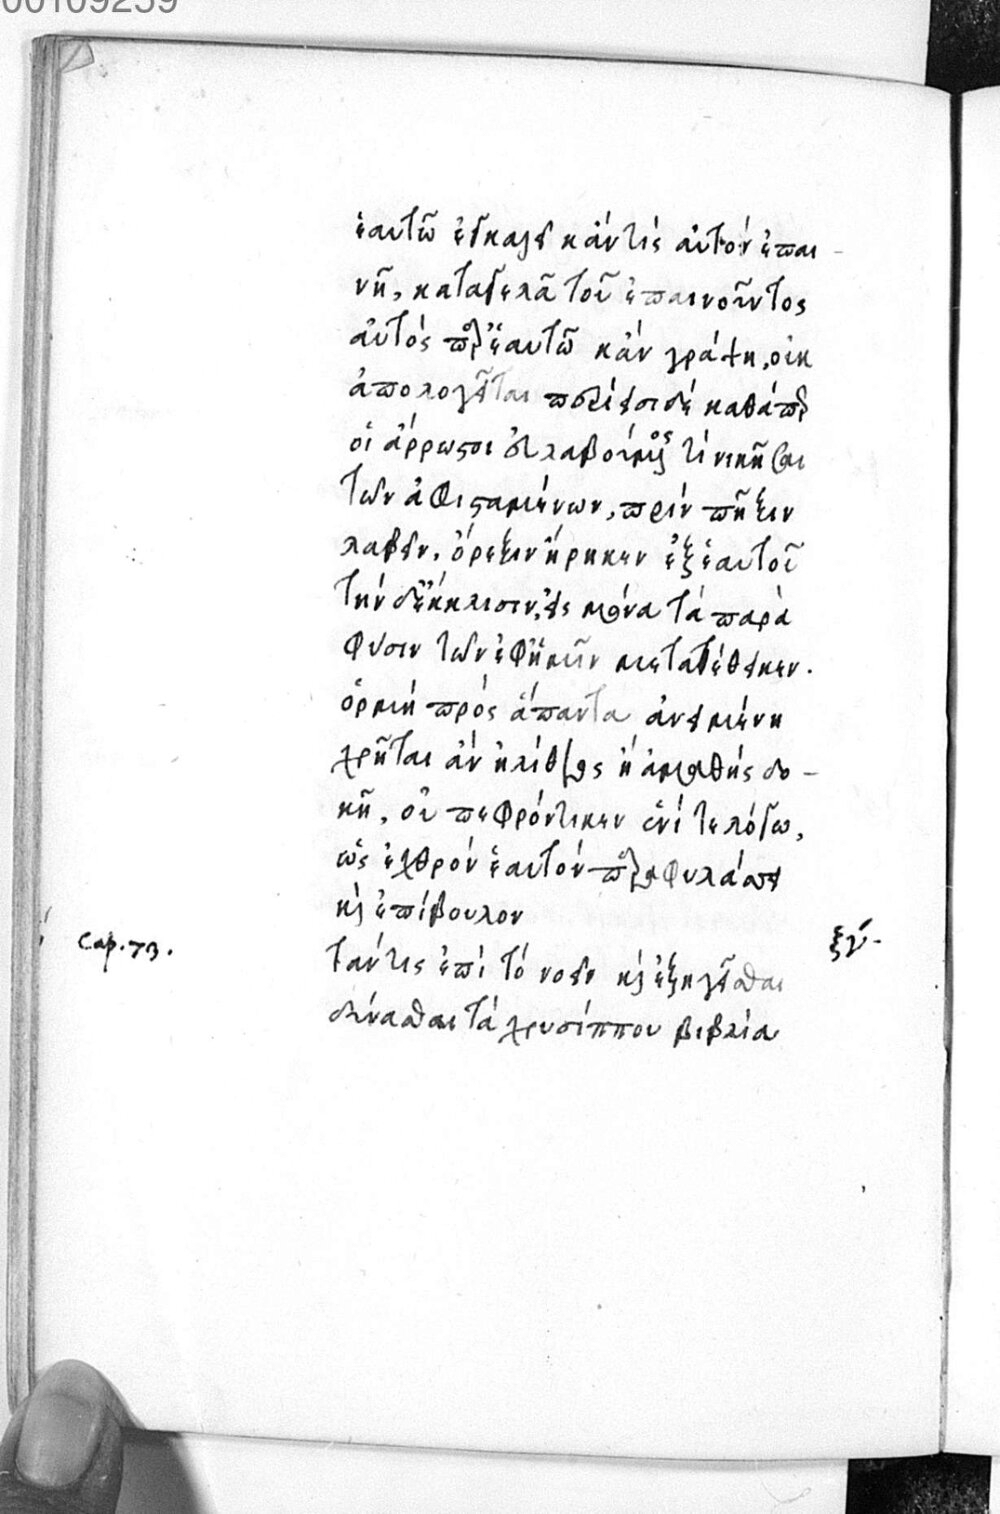 00109259
ἑαυτῶ ἐγκαλεῖ κἄν τις αὐτὸν ἐπαι-
νῆ, καταγελᾶ τοῦ ἐπαινοῦντος
αὐτὸς παρ' ἑαυτῶ κἂν ψέγη, οὐκ
ἀπολογεῖται περίεισι δὲ καθάπερ
οἱ ἄρρωστοι εὐλαβούμενος τὶ κινῆσαι
τῶν καθισταμένων, πρὶν πῆξιν
λαβεῖν. ὄρεξιν ἤρηκεν ἐξ ἑαυτοῦ
τὴν δ' ἔκκλισιν, εἰς μόνα τὰ παρὰ
φύσιν τῶν ἐφ' ἡμῖν μετατέθεικεν.
ὁρμῆ πρὸς ἅπαντα ἀνειμένη
χρῆται ἂν ἠλίθιος ἢ ἀμαθὴς δο-
κῆ, οὐ πεφρόντικεν ἑνί τε λόγω,
ὡς ἐχθρὸν ἑαυτὸν παραφυλάσσει
καὶ ἐπίβουλον
Cap. 73.
ξγ´.
ὅταν τις ἐπὶ τὸ νοεῖν καὶ ἐξηγεῖσθαι
δύνασθαι τὰ χρυσίππου βιβλία